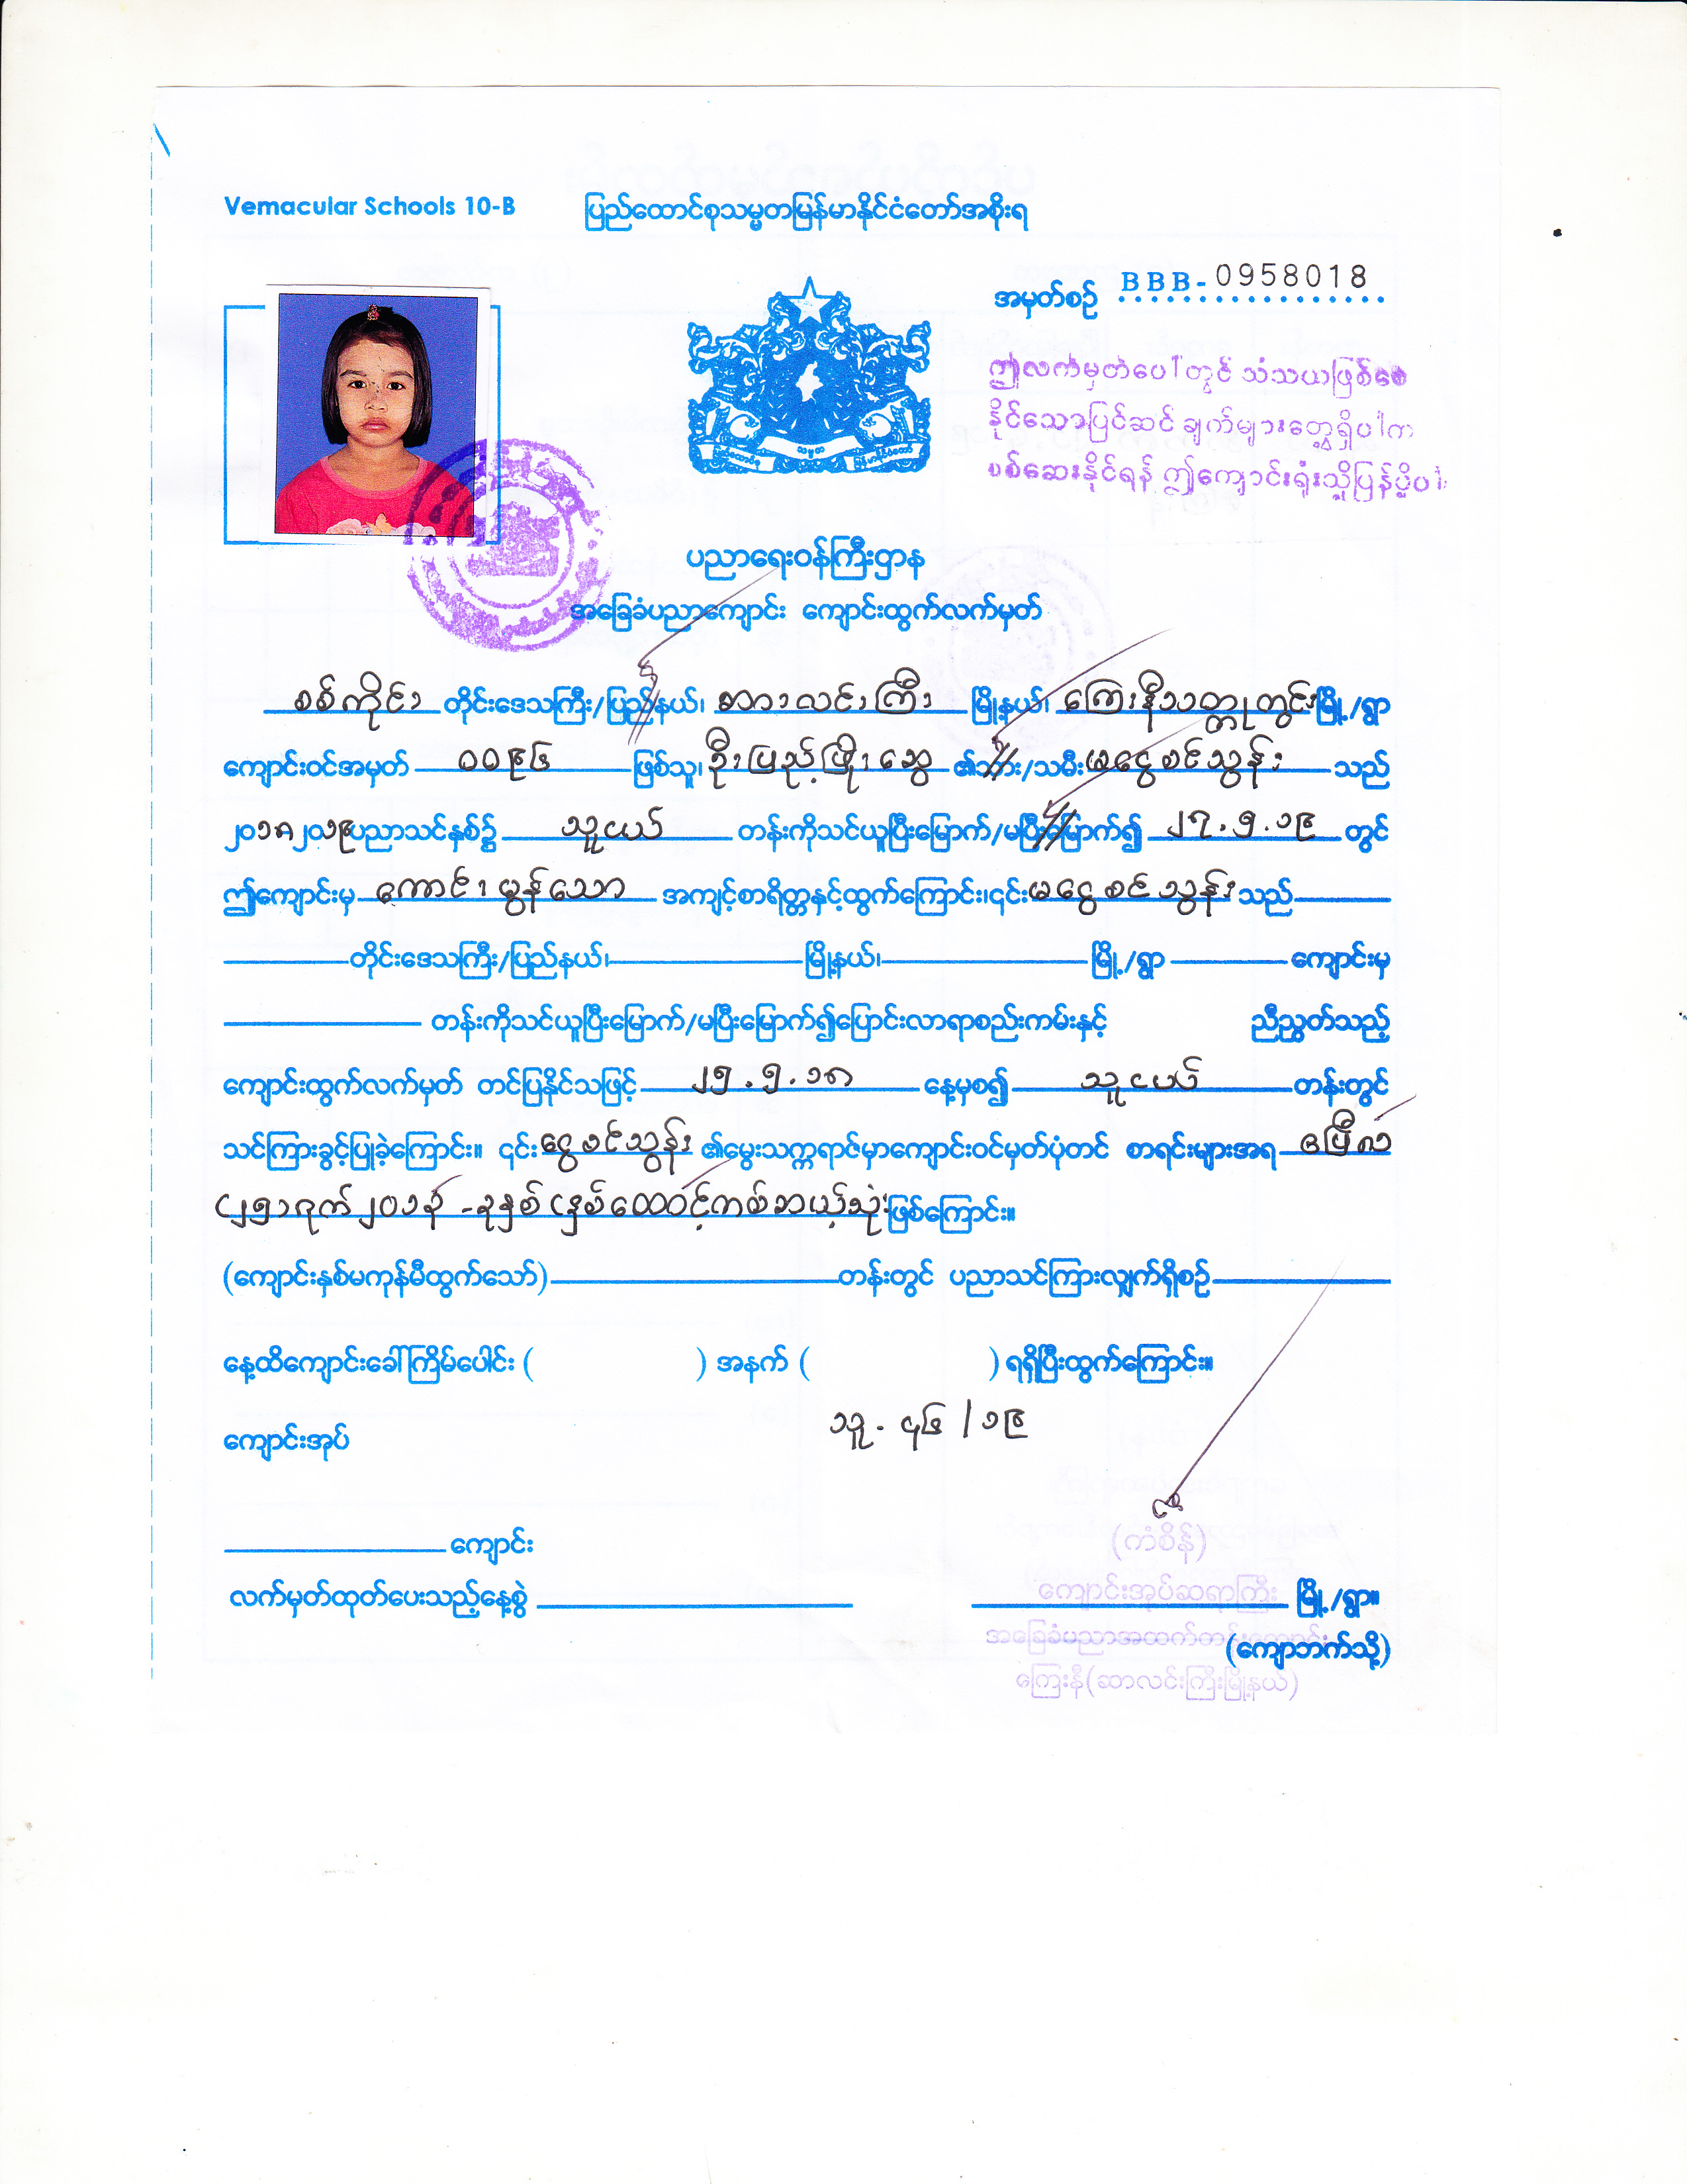 Vemacular Schools 10-B ပြည်ထောင်စုသမ္မတမြန်မာနိုင်ငံတော်အစိုးရ
အမှတ်စဉ် BBB-0958018
ဤလက်မှတ်ပေါ်တွင် သံသယဖြစ်စေ
နိုင်သောပြင်ဆင် ချက်များတွေ့ရှိပါက
စစ်ဆေးနိုင်ရန် ဤကျောင်းရုံးသို့ပြန်ပို့ပါ
ပညာရေးဝန်ကြီးဌာန
အခြေခံပညာကျောင်း ကျောင်းထွက်လက်မှတ်
စစ်ကိုင်း တိုင်းဒေသကြီး/ပြည်နယ်၊ ဆားလင်းကြီး မြို့နယ်၊ ကြေးနီသတ္တုတွင်း မြို့/ရွာ
ကျောင်းဝင်အမှတ် ၀၀၉၆ ဖြစ်သူ၊ ဦးပြည့်ဖြိုးဆွေ ၏သား/သမီး မငွေစင်သွန်း သည်
၂၀၁၈၂၀၁၉ပညာသင်နှစ်၌ သူငယ် တန်းကိုသင်ယူပြီးမြောက်/မပြီးမြောက်၍ ၂၇.၅.၁၉ တွင်
ဤကျောင်းမှ ကောင်းမွန်သော အကျင့်စာရိတ္တနှင့်ထွက်ကြောင်း၊၎င်း မငွေစင်သွန်း သည်
တိုင်းဒေသကြီး/ပြည်နယ်၊ မြို့နယ်၊ မြို့/ရွာ ကျောင်းမှ
တန်းကိုသင်ယူပြီးမြောက်/မပြီးမြောက်၍ပြောင်းလာရာစည်းကမ်းနှင့် ညီညွတ်သည့်
ကျောင်းထွက်လက်မှတ် တင်ပြနိုင်သဖြင့် ၂၅.၅.၁၈ နေ့မှစ၍ သူငယ် တန်းတွင်
သင်ကြားခွင့်ပြုခဲ့ကြောင်း။ ၎င်း ငွေစင်သွန်း ၏မွေးသက္ကရာဇ်မှာကျောင်းဝင်မှတ်ပုံတင် စာရင်းများအရ ဧပြီလ
(၂၅)ရက် ၂၀၁၃ -ခုနှစ် (နှစ်ထောင့်တစ်ဆယ့်သုံး ဖြစ်ကြောင်း။
(ကျောင်းနှစ်မကုန်မီထွက်သော်) တန်းတွင် ပညာသင်ကြားလျှက်ရှိစဉ်
နေ့ထိကျောင်းခေါ်ကြိမ်ပေါင်း ( ) အနက် ( ) ရရှိပြီးထွက်ကြောင်း။
သူ-၄၆/၁၉
ကျောင်းအုပ်
ကျောင်း
(ကံစိန်)
ကျောင်းအုပ်ဆရာကြီး
လက်မှတ်ထုတ်ပေးသည့်နေ့စွဲ မြို့/ရွာ။
အခြေခံပညာအထက်တန်းကျောင်း
(ကျောဘက်သို့)
ကြေးနီ(ဆာလင်းကြီးမြို့နယ်)